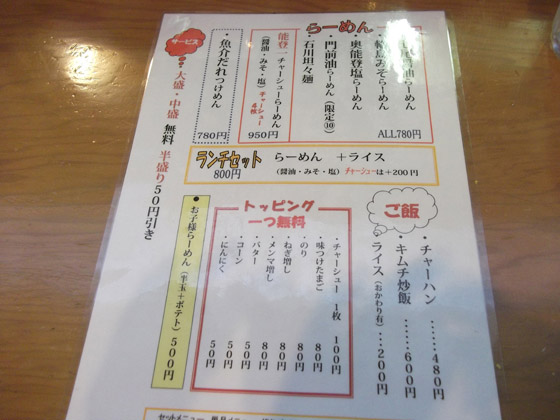 らーめん
らーめん
・輪島みそらーめん
・奥能登塩らーめん
・門前油らーめん（限定⑩）
・石川坦々麺
ALL780円
能登一チャーシューらーめん
（醤油・みそ・塩）チャーシュー4枚
950円
・魚介だれつけめん
780円
サービス
大盛・中盛 無料 半盛り50円引き
ランチセット
800円
らーめん ＋ライス
（醤油・みそ・塩） チャーシューは＋200円
ご飯
・チャーハン ……480円
・キムチ炒飯 ……600円
・ライス（おかわり有）…200円
トッピング
一つ無料
・チャーシュー 1枚 100円
・味つけたまご 80円
・のり 80円
・ねぎ増し 80円
・メンマ増し 80円
・バター 50円
・コーン 50円
・にんにく 50円
・お子様らーめん（半玉＋ポテト）500円
セットメニュー